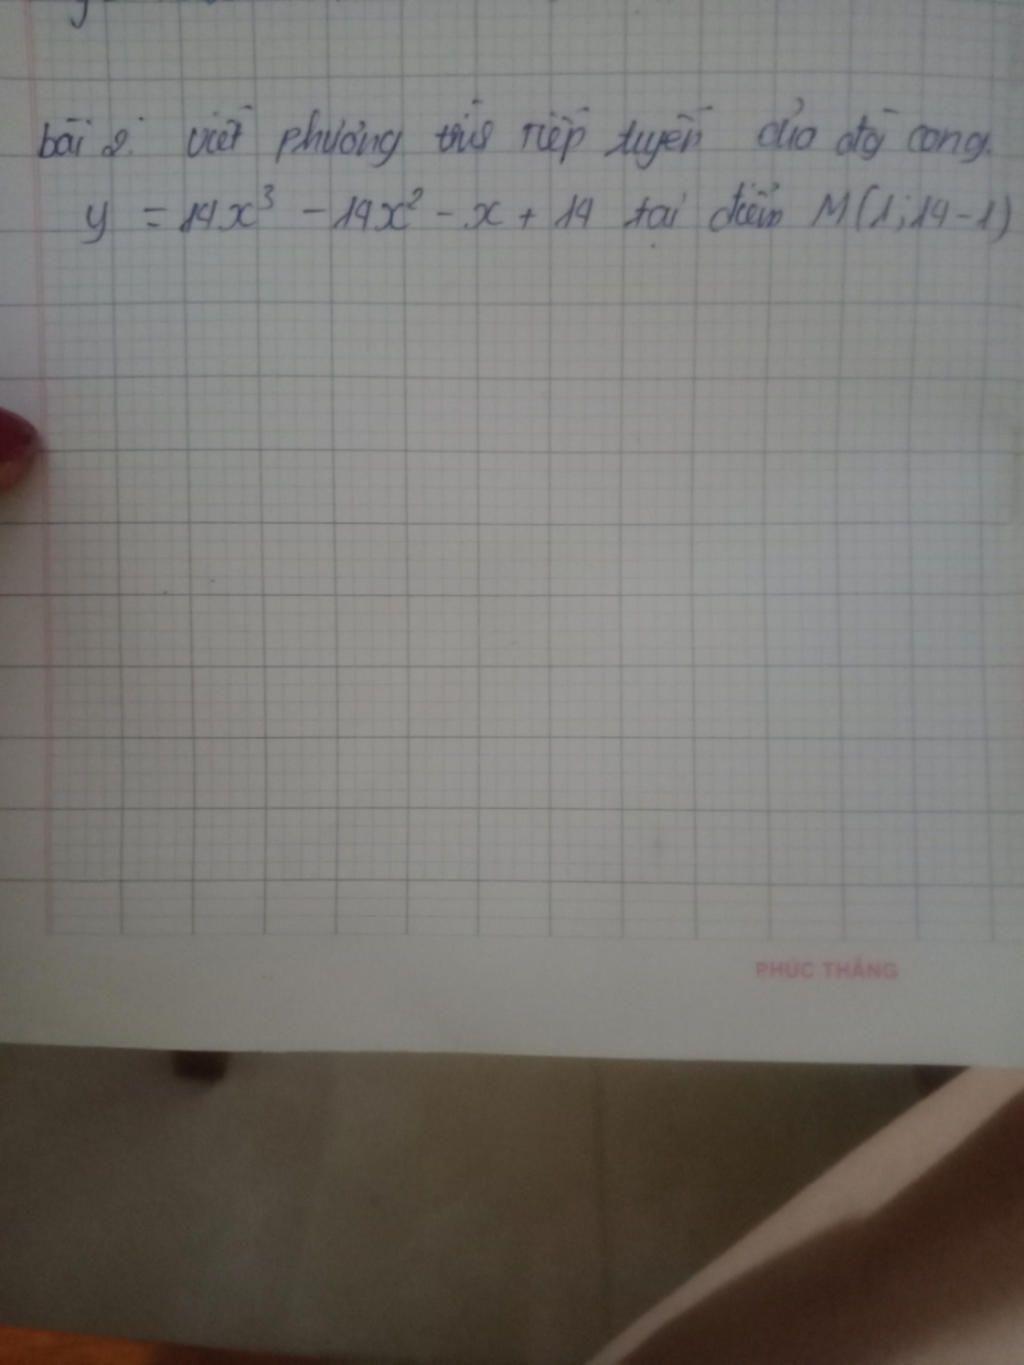 bài 2. viết phương trình tiếp tuyến của đồ cong.
y = 14x³ - 14x² - x + 14 tại điểm M(1; 14-1)
PHÚC THẮNG